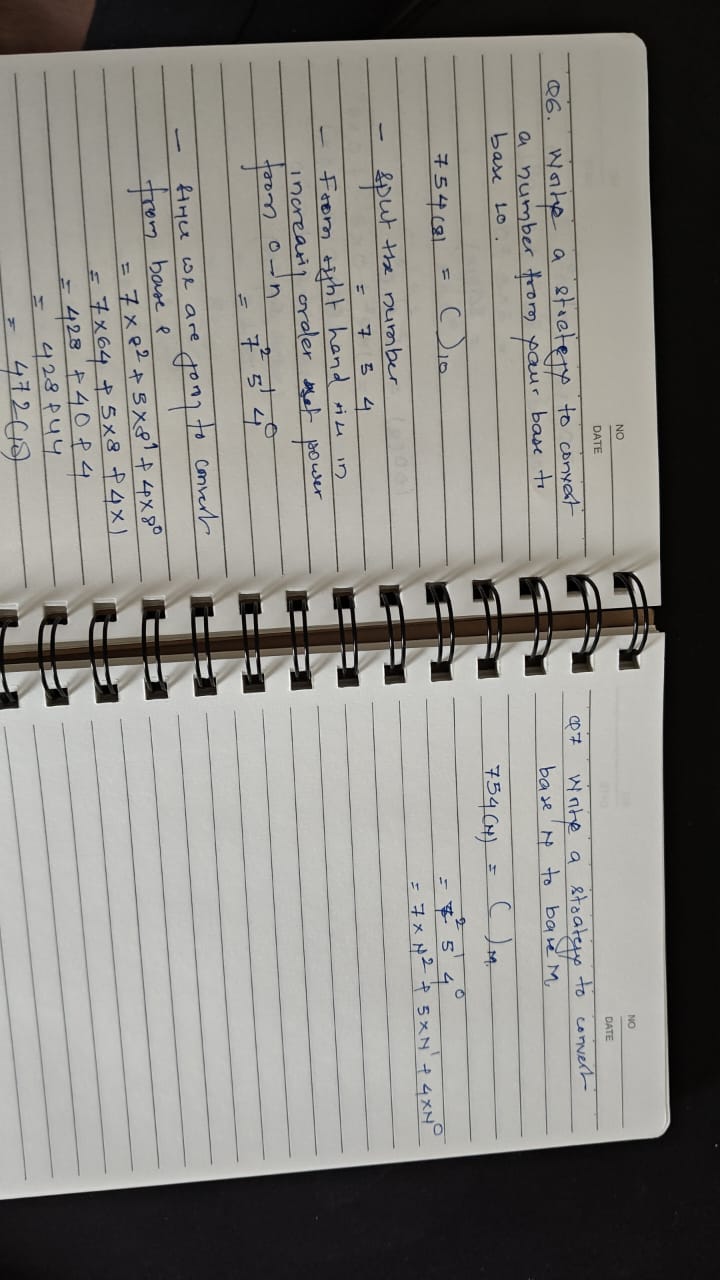 NO
DATE
Q6. Write a strategy to convert
a number from your base to
base 10.
754(8) = ( )10
- Split the number
= 7 5 4
- From right hand side in
increasing order power
from 0-n
= 7² 5¹ 4⁰
- Hence we are going to convert
from base 8
= 7×8² + 5×8¹ + 4×8⁰
= 7×64 + 5×8 + 4×1
= 428 + 40 + 4
= 428 + 44
= 472(10)
NO
DATE
Q7 Write a strategy to convert
base N to base M
754(N) = ( )M.
= 7² 5¹ 4⁰
= 7×N² + 5×N¹ + 4×N⁰